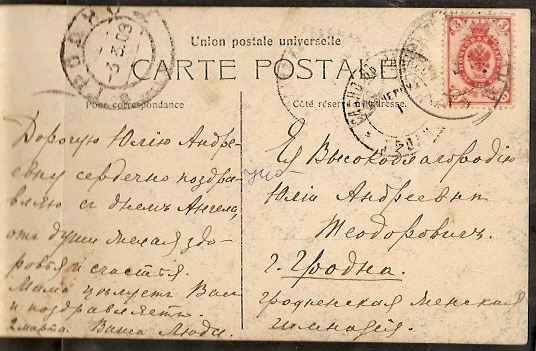 Union postale universelle
CARTE POSTALE
Pour correspondance
Côté réservé à l'adresse.
ГРОДНО
-3.3.09
Дорогую Юлію Андре-
евну сердечно поздра-
вляю съ днемъ Ангела,
отъ души желая здо-
ровья и счастія.
Мама цѣлуетъ Васъ
и поздравляетъ.
2 марта. Ваша Люди.
Ея Высокоблагородію
Юліи Андреевнѣ
Теодоровичъ.
г. Гродна.
Гродненская женская
гимназія.